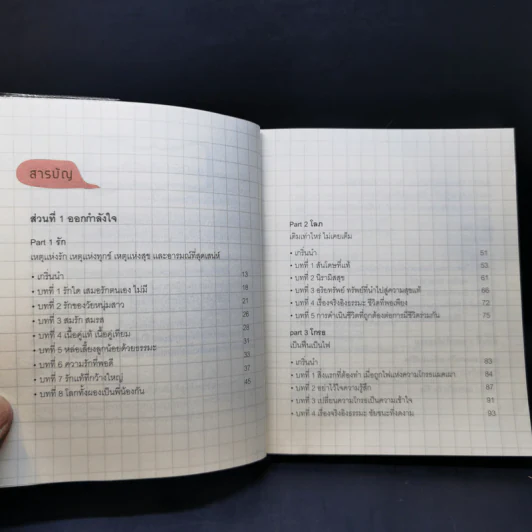 สารบัญ
ส่วนที่ 1 ออกกำลังใจ
Part 1 รัก
เหตุแห่งรัก เหตุแห่งทุกข์ เหตุแห่งสุข และอารมณ์ที่สุดเสน่ห์
• เกริ่นนำ 13
• บทที่ 1 รักใด เสมอรักตนเอง ไม่มี 18
• บทที่ 2 รักของวัยหนุ่มสาว 21
• บทที่ 3 สมรัก สมรส 26
• บทที่ 4 เนื้อคู่แท้ เนื้อคู่เทียม 28
• บทที่ 5 หล่อเลี้ยงลูกน้อยด้วยธรรมะ 31
• บทที่ 6 ความรักที่พอดี 33
• บทที่ 7 รักแท้ที่กว้างใหญ่ 37
• บทที่ 8 โลกทั้งผองเป็นพี่น้องกัน 45
Part 2 โลภ
เติมเท่าไหร่ ไม่เคยเต็ม
• เกริ่นนำ 51
• บทที่ 1 สันโดษที่แท้ 53
• บทที่ 2 นิรามิสสุข 61
• บทที่ 3 อริยทรัพย์ ทรัพย์ที่นำไปสู่ความสุขแท้ 66
• บทที่ 4 เรื่องจริงอิงธรรมะ ชีวิตที่พอเพียง 72
• บทที่ 5 การดำเนินชีวิตที่ถูกต้องต่อการมีชีวิตร่วมกัน 75
part 3 โกรธ
เป็นฟืนเป็นไฟ
• เกริ่นนำ 83
• บทที่ 1 สิ่งแรกที่ต้องทำ เมื่อถูกไฟแห่งความโกรธแผดเผา 84
• บทที่ 2 อย่าไว้ใจความรู้สึก 87
• บทที่ 3 เปลี่ยนความโกรธเป็นความเข้าใจ 91
• บทที่ 4 เรื่องจริงอิงธรรมะ ชัยชนะที่งดงาม 93